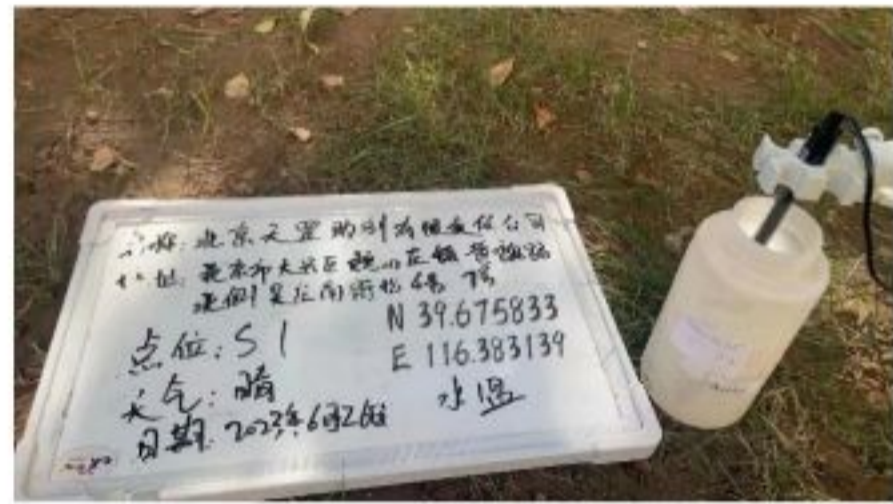 名称: 北京天罡助剂有限责任公司
地址: 北京市大兴区魏善庄镇
北侧
点位: S1
N 39.675833
E 116.383139
天气: 晴
水温
日期: 2023年6月26日